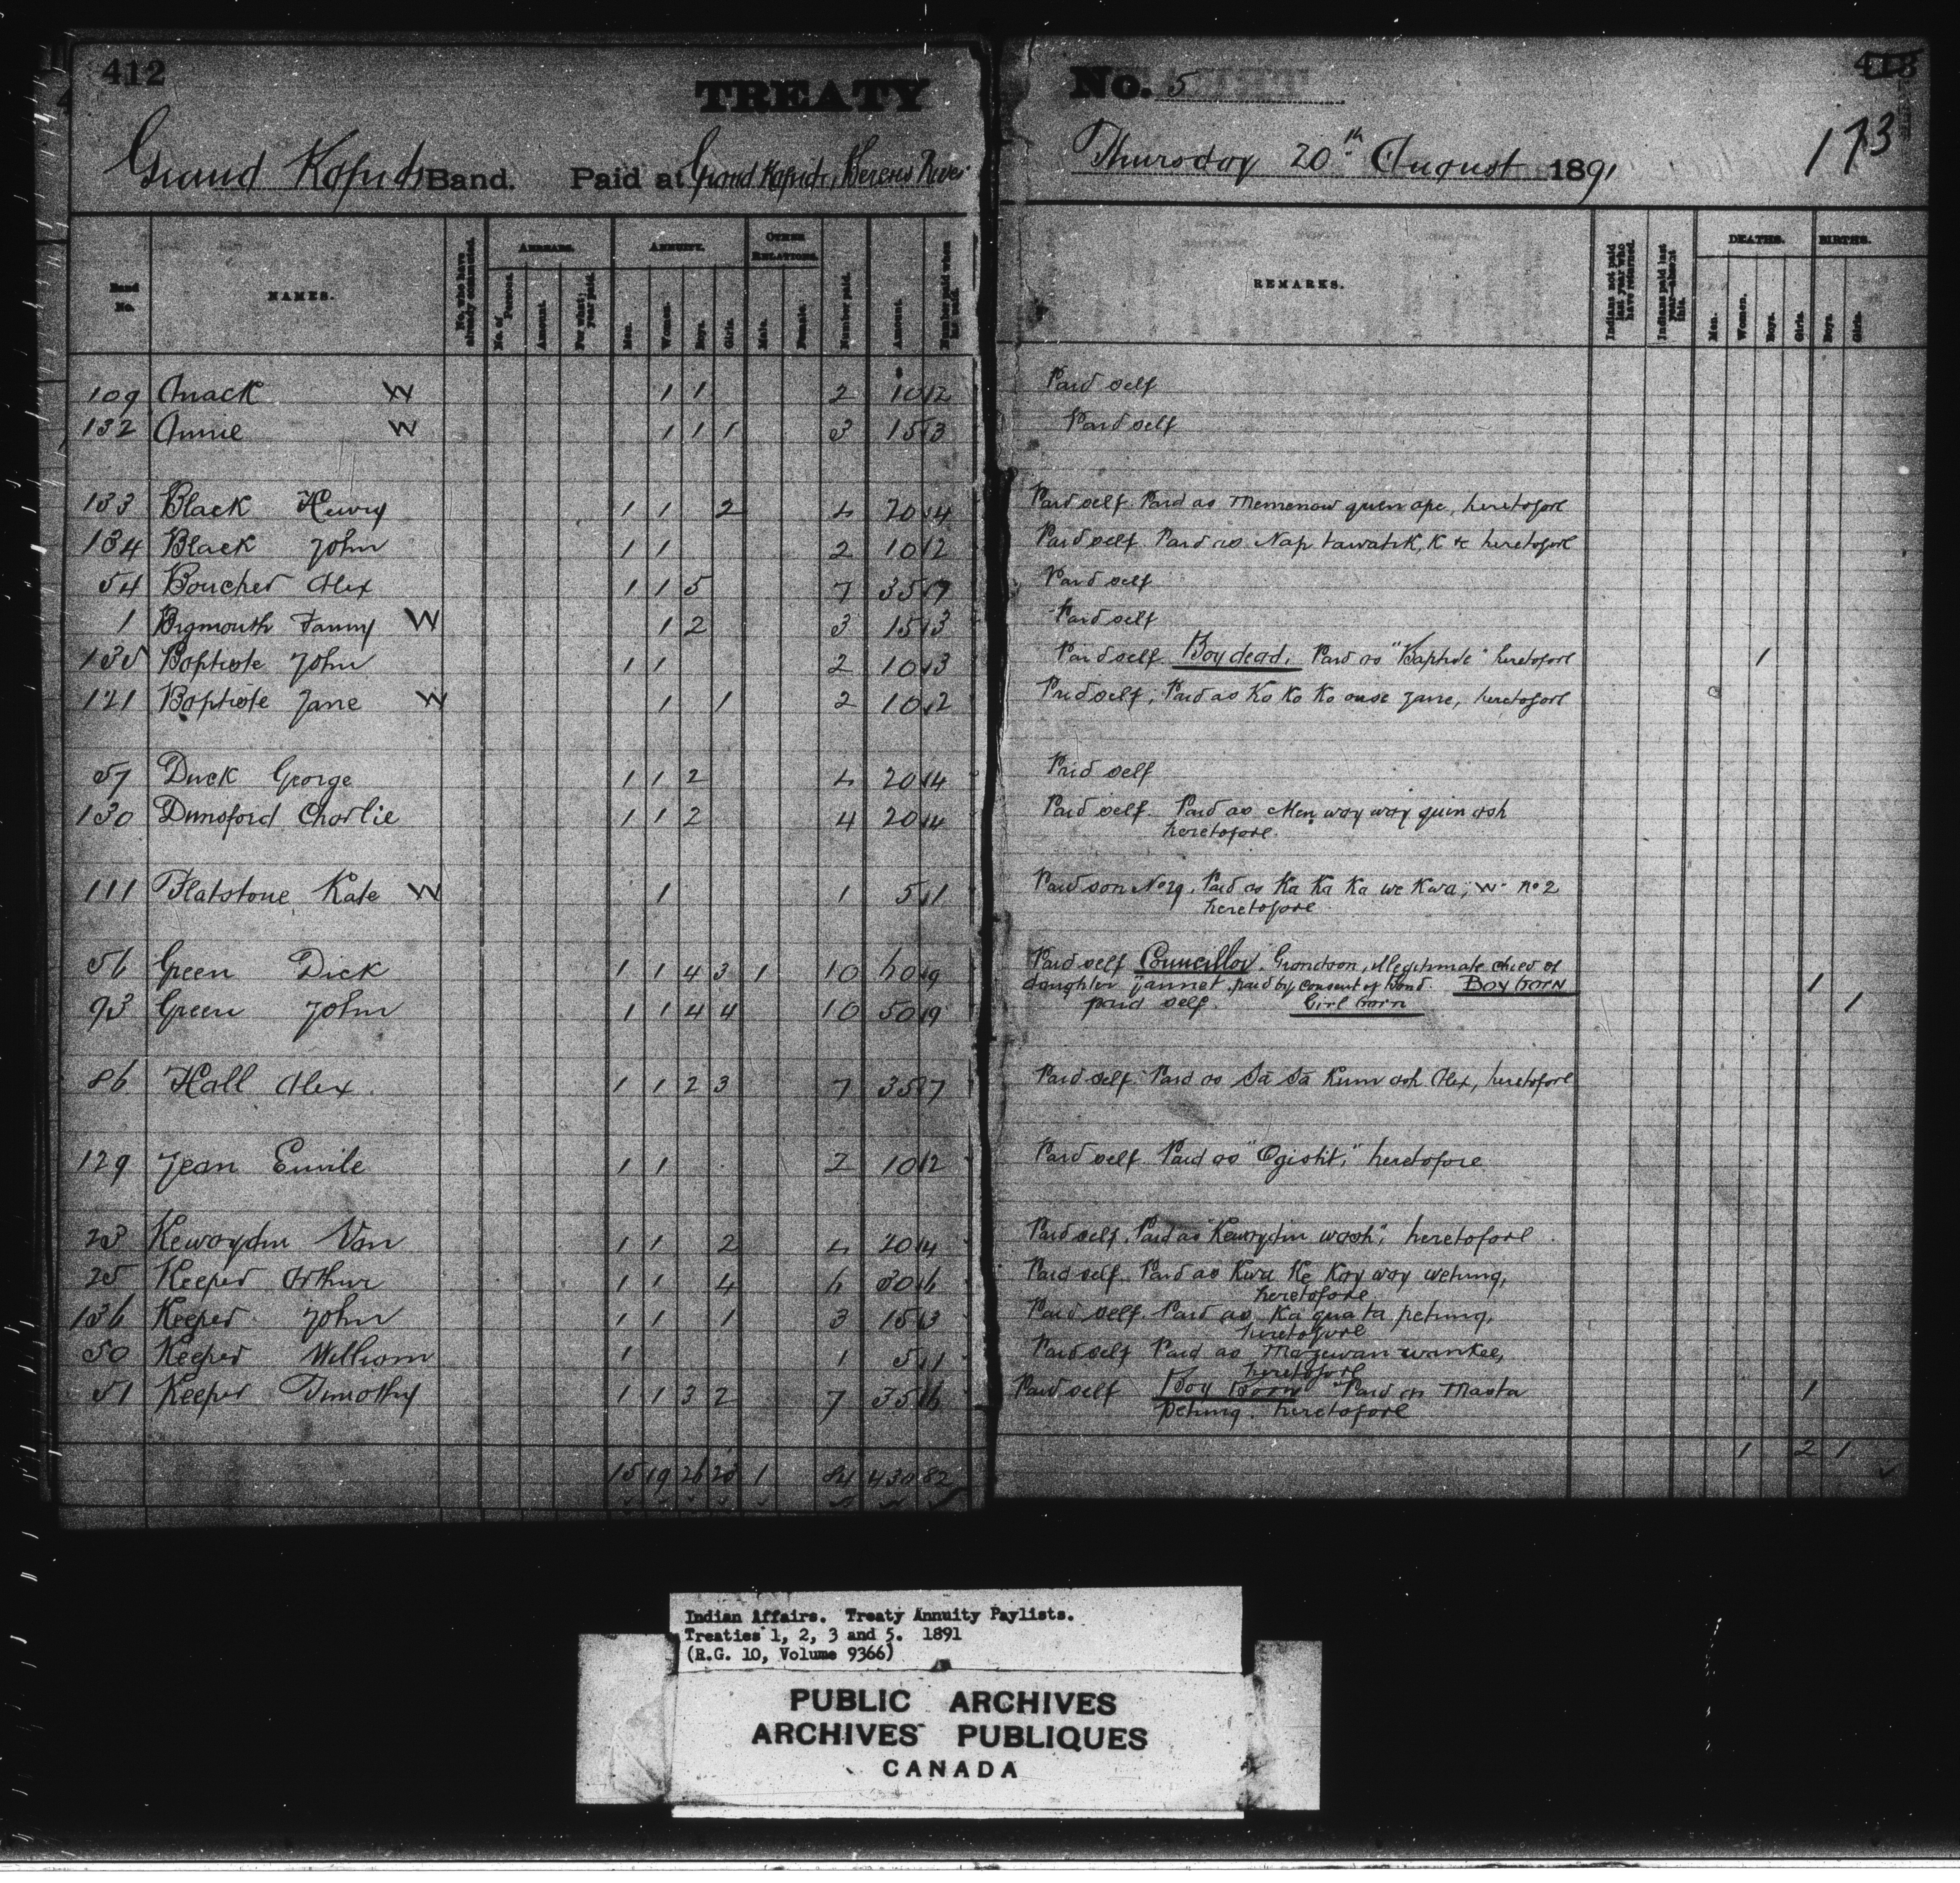 412
TREATY
Grand Rapids Band. Paid at Grand Rapids, Berens River
No. 5
413
Thursday 20th August 1891
173
Band No. NAMES. No. who have already commuted. ARREARS. No. of Persons. Amount. For what year paid. ANNUITY. Men. Women. Boys. Girls. OTHER RELATIONS. Male. Female. Number paid. Amount. Number paid when last paid.
REMARKS. Indians not paid last year who have returned. Indians paid last year—absent this. DEATHS. Men. Women. Boys. Girls. BIRTHS. Boys. Girls.
109 Anack W 1 1 2 10 2 Paid self
132 Annie W 1 1 1 3 15 3 Paid self
133 Black Henry 1 1 2 4 20 4 Paid self. Paid as Memenow quen ape, heretofore
134 Black John 1 1 2 10 2 Paid self. Paid as Nap tawatik, K & heretofore
54 Boucher Alex 1 1 5 7 35 7 Paid self
1 Bigmouth Fanny W 1 2 3 15 3 Paid self
135 Baptiste John 1 1 2 10 3 Paid self. Boy dead. Paid as "Baptiste" heretofore 1
121 Baptiste Jane W 1 1 2 10 2 Paid self, Paid as Ko Ko Ko ouse Jane, heretofore
57 Duck George 1 1 2 4 20 4 Paid self
130 Dunsford Charlie 1 1 2 4 20 4 Paid self. Paid as Men way way quin ash
heretofore.
111 Flatstone Kate W 1 1 5 1 Paid son No 29. Paid as Ka Ka Ka we Kwa, W no 2
heretofore
56 Green Dick 1 1 4 3 1 10 60 9 Paid self Councillor. Grandson, illegitimate child of
daughter Jannet, paid by consent of Band. Boy born 1
93 Green John 1 1 4 4 10 50 9 paid self. Girl born 1
86 Hall Alex 1 1 2 3 7 35 7 Paid self. Paid as Sa Sa Kum ash Alex, heretofore
129 Jean Emile 1 1 2 10 2 Paid self. Paid as "Ogistit," heretofore
23 Kewaydin Van 1 1 2 4 20 4 Paid self. Paid as "Kewaydin wash", heretofore
25 Keeper Arthur 1 1 4 6 30 6 Paid self. Paid as Kwa Ke Kay way wetung,
heretofore
136 Keeper John 1 1 1 3 15 3 Paid self. Paid as Ka qua ta petung,
heretofore
50 Keeper William 1 1 5 1 Paid self Paid as Mazewan wankee,
heretofore
51 Keeper Timothy 1 1 3 2 7 35 6 Paid self Boy Born Paid as Masta 1
petung. heretofore
15 19 26 23 1 84 430 82 1 2 1
Indian Affairs. Treaty Annuity Paylists.
Treaties 1, 2, 3 and 5. 1891
(R.G. 10, Volume 9366)
PUBLIC ARCHIVES
ARCHIVES PUBLIQUES
CANADA